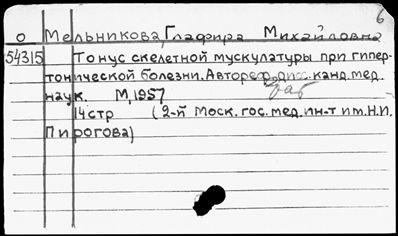 6
О Мельникова, Глафира Михайловна
54315 Тонус скелетной мускулатуры при гипер-
тонической болезни. Автореф. дисс. канд. мед.
наук. М, 1957
14 стр (2-й Моск. гос. мед. ин-т им. Н.И.
Пирогова)